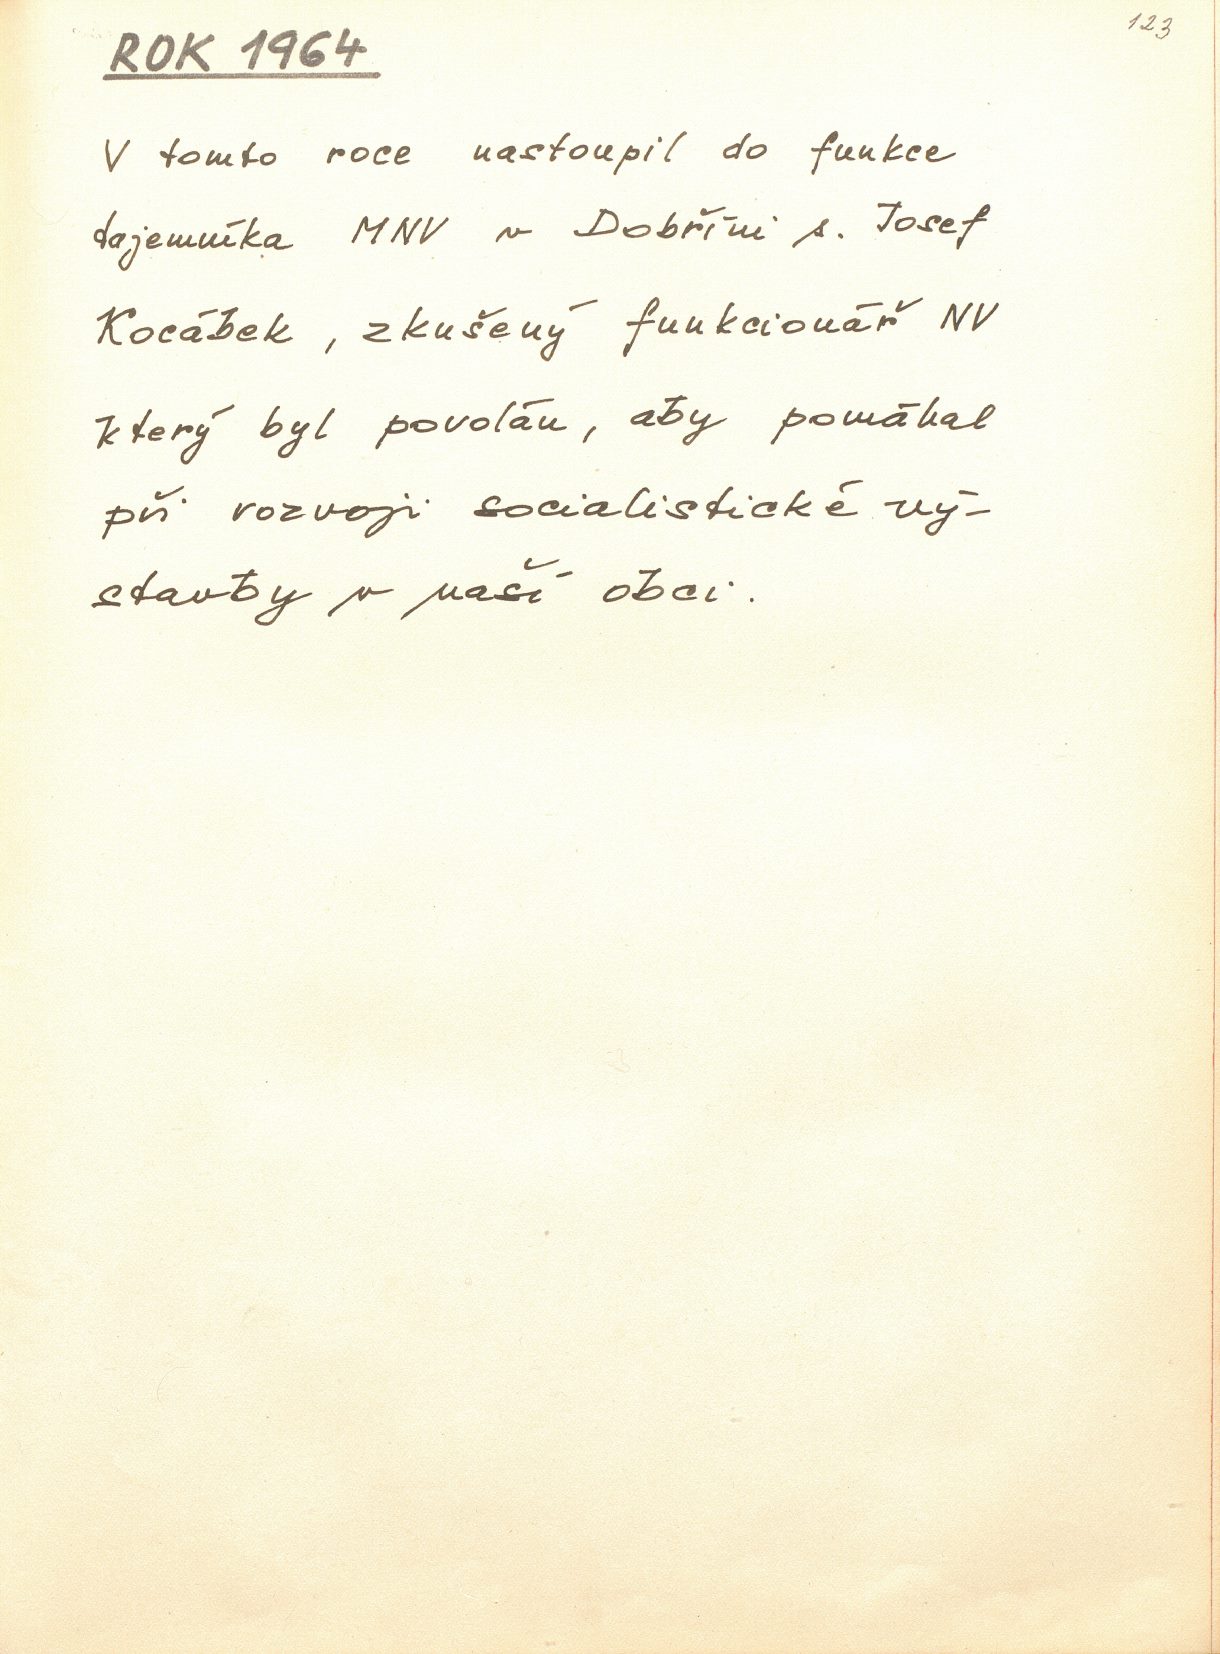 123
ROK 1964
V tomto roce nastoupil do funkce
tajemníka MNV v Dobříni s. Josef
Kocábek, zkušený funkcionář NV
který byl povolán, aby pomáhal
při rozvoji socialistické vý-
stavby v naší obci.